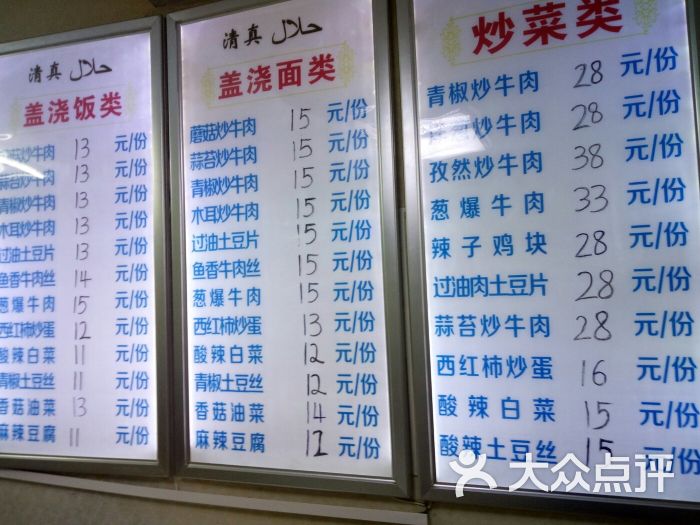 清真 حلال
盖浇饭类
菇炒牛肉 13 元/份
蒜苔炒牛肉 13 元/份
青椒炒牛肉 13 元/份
木耳炒牛肉 13 元/份
过油土豆片 13 元/份
鱼香牛肉丝 14 元/份
葱爆牛肉 15 元/份
西红柿炒蛋 12 元/份
酸辣白菜 11 元/份
青椒土豆丝 11 元/份
香菇油菜 13 元/份
麻辣豆腐 11 元/份
清真 حلال
盖浇面类
蘑菇炒牛肉 15 元/份
蒜苔炒牛肉 15 元/份
青椒炒牛肉 15 元/份
木耳炒牛肉 15 元/份
过油土豆片 15 元/份
鱼香牛肉丝 15 元/份
葱爆牛肉 15 元/份
西红柿炒蛋 13 元/份
酸辣白菜 12 元/份
青椒土豆丝 12 元/份
香菇油菜 14 元/份
麻辣豆腐 12 元/份
炒菜类
青椒炒牛肉 28 元/份
炒牛肉 28 元/份
孜然炒牛肉 38 元/份
葱爆牛肉 33 元/份
辣子鸡块 28 元/份
过油肉土豆片 28 元/份
蒜苔炒牛肉 28 元/份
西红柿炒蛋 16 元/份
酸辣白菜 15 元/份
酸辣土豆丝 15 元/份
大众点评